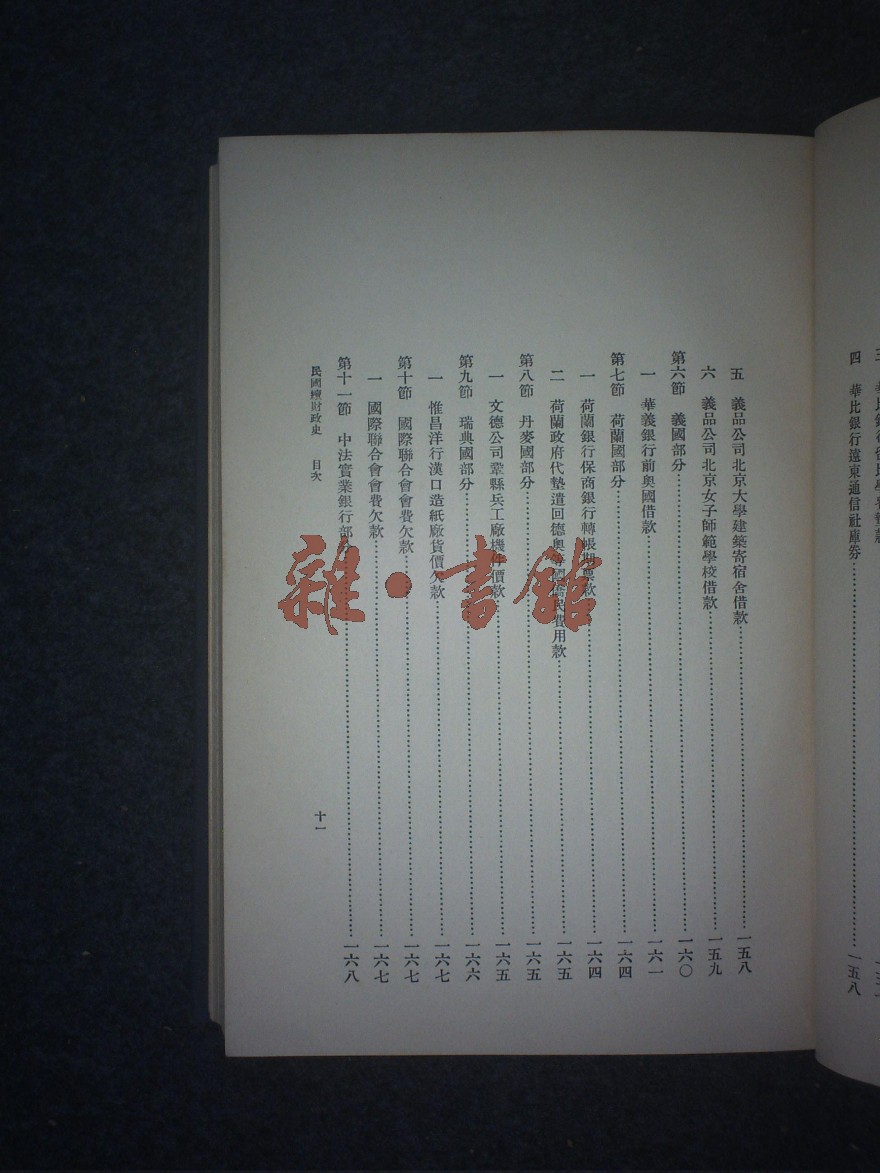 四　華比銀行遠東通信社庫券……一五八
五　義品公司北京大學建築寄宿舍借款……一五八
六　義品公司北京女子師範學校借款……一五九
第六節　義國部分……一六〇
一　華義銀行前奧國借款……一六一
第七節　荷蘭國部分……一六四
一　荷蘭銀行保商銀行轉帳期票款……一六四
二　荷蘭政府代墊遣回德奧等國僑民費用款……一六五
第八節　丹麥國部分……一六五
一　文德公司鞏縣兵工廠機件價款……一六五
第九節　瑞典國部分……一六六
一　惟昌洋行漢口造紙廠貨價欠款……一六七
第十節　國際聯合會會費欠款……一六七
一　國際聯合會會費欠款……一六七
第十一節　中法實業銀行部分……一六八
民國續財政史　目次
十一
雜·書館